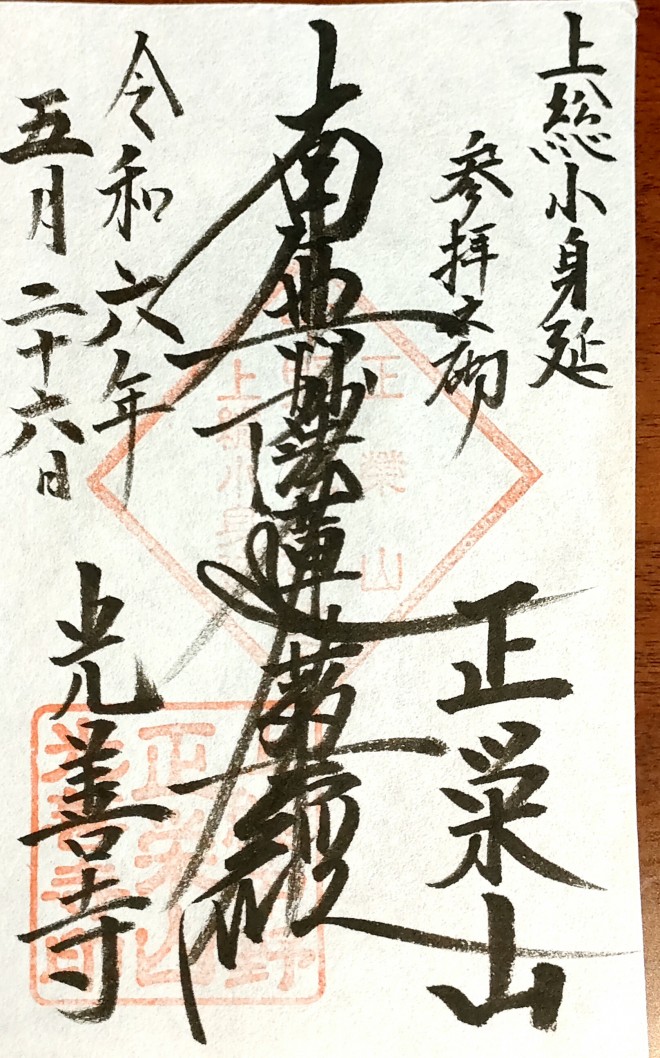 上総小身延
参拝之砌
正栄山
南無妙法蓮華経
正榮山
上総小身
令和六年
五月二十六日
光善寺
正栄山
光善寺